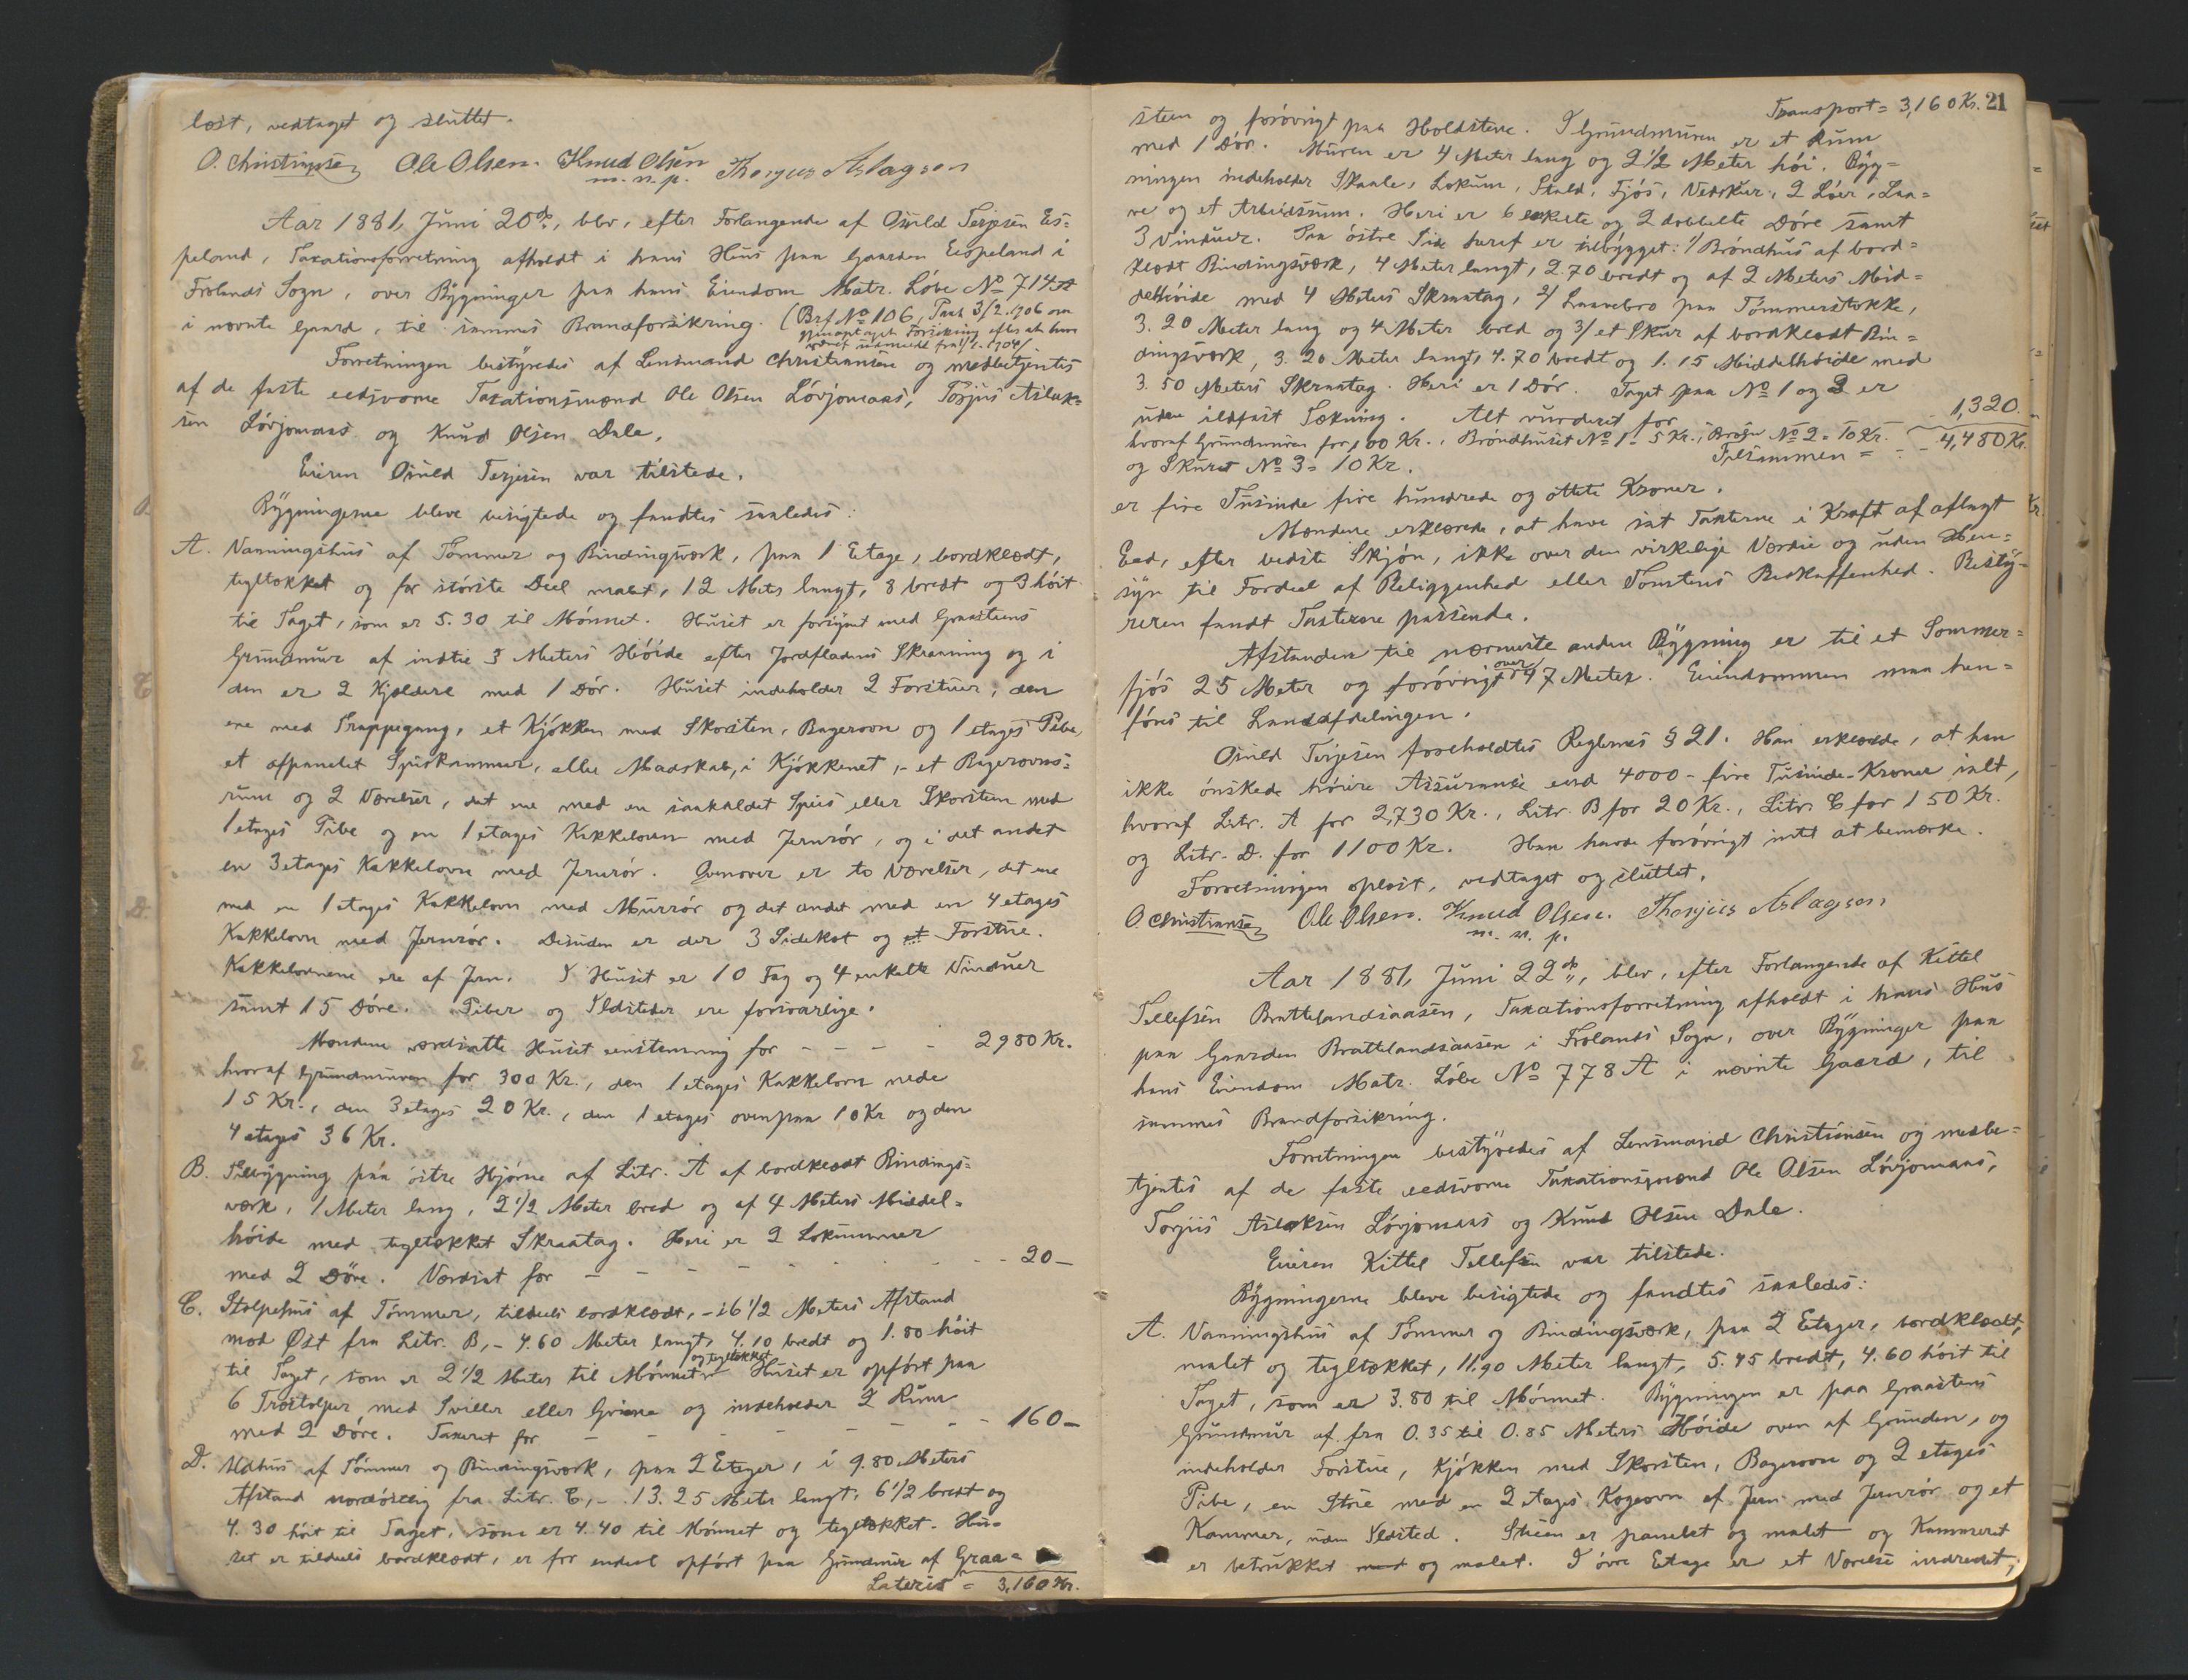 læst, vedtaget og sluttet.
O. Christiansen Ole Olsen. Knud Olsen Thorjus Aslagson
m. n. p.
Aar 1881, Juni 20de, blev, efter Forlangende af Osuld Terjesen Es=
peland, Taxationsforretning afholdt i hans Hus paa Gaarden Espeland i
Frolands Sogn, over Bygninger paa hans Eiendom Matr. Løbe No 714 A
i nævnte Gaard, til sammes Brandforsikring. (Brf No 106, Pask 3/2.1906 om
gjenoptaget Forsikring efter at have
været udmeldt fra 1/1.1904/
Forretningen bestyredes af Lensmand Christiansen og medbetjentes
af de faste eedsvorne Taxationsmænd Ole Olsen Løvjomaas, Torjus Aslak=
sen Løvjomaas og Knud Olsen Dale.
Eieren Osuld Terjesen var tilstede.
Bygningerne bleve besigtede og fandtes saaledes:
A. Vaaningshus af Tømmer og Bindingsværk, paa 1 Etage, bordklædt,
tegltækket og for største Deel malet, 12 Meter langt, 8 bredt og 3 høit
til Taget, som er 5.30 til Mønnet. Huset er forsynet med Graasteens
Grundmur af indtil 3 Meters Høide efter Jordfladens Skraaning og i
den er 2 Kjældere med 1 Dør. Huset indeholder 2 Forstuer, den
ene med Trappegang, et Kjøkken med Skorsten, Bagerovn og 1 etages Pibe,
et afpanelet Spiskammer, eller Madskab, i Kjøkkenet, - et Bagerovns=
rum og 2 Værelser, det ene med en saakaldet Spiis eller Skorsteen med
1 etages Pibe og en 1 etages Kakkelovn med Jernrør, og i det andet
en 3 etages Kakkelovn med Jernrør. Ovenover er to Værelser, det ene
med en 1 etages Kakkelovn med Murrør og det andet med en 4 etages
Kakkelovn med Jernrør. Desuden er der 3 Sidekot og et Forstue.
Kakkelovnene ere af Jern. I Huset er 10 Fag og 4 enkelte Vinduer
samt 15 Døre. Piber og Ildsteder ere forsvarlige.
Mændene værdsatte Huset eenstemmig for - - - - 2980 Kr.
hvoraf Grundmuren for 300 Kr., den 1 etages Kakkelovn nede
15 Kr., den 3 etages 20 Kr., den 1 etages ovenpaa 10 Kr og den
4 etages 36 Kr.
B. Tilbygning paa østre Hjørne af Litr. A af bordklædt Bindings=
værk, 1 Meter lang, 2 1/2 Meter bred og af 4 Meters Middel=
høide med tegltækket Skraatag. Heri er 2 Lokummer
med 2 Døre. Værdsat for - - - - - - - - 20 -
C. Stolpehus af Tømmer, tildeels bordklædt, - i 6 1/2 Meters Afstand
mod Øst fra Litr. B, - 4.60 Meter langt, 4.10 bredt og 1.80 høit
til Taget, som er 2 1/2 Meter til Mønnet og tegltækket. Huset er opført paa
6 Træstolper med Sviller eller Grinna og indeholder 2 Rum
med 2 Døre. Taxeret for - - - - - - - 160 -
D. Udhus af Tømmer og Bindingsværk, paa 2 Etager, i 9.80 Meters
Afstand nordøstlig fra Litr. C, - 13.25 Meter langt, 6 1/2 bredt og
4.30 høit til Taget, som er 4.40 til Mønnet og tegltækket. Hu=
set er tildeels bordklædt, er for endeel opført paa Grundmur af Graa=
Lateris = 3,160 Kr.
Transport = 3,160 Kr. 21
steen og forøvrigt paa Holdstene. I Grundmuren er et Rum
med 1 Dør. Muren er 4 Meter lang og 2 1/2 Meter høi. Byg=
ningen indeholder Skaale, Lokum, Stald, Fjøs, Vedskur, 2 Løer, Laa=
ve og et Arbeidsrum. Heri er 6 enkelte og 2 dobbelte Døre samt
3 Vinduer. Paa østre Side heraf er tilbygget: 1/ Brøndhus af bord=
klædt Bindingsværk, 4 Meter langt, 2.70 bredt og af 2 Meters Mid=
delhøide med 4 Meters Skraatag, 2/ Laavebro paa Tømmerstokke,
3.20 Meter lang og 4 Meter bred og 3/ et Skur af bordklædt Bin=
dingsværk, 3.20 Meter langt, 4.70 bredt og 1.15 Middelhøide med
3.50 Meters Skraatag. Heri er 1 Dør. Taget paa No 1 og 3 er
uden ildfast Tækning. Alt vurderet for 1,320 -
hvoraf Grundmuren for 100 Kr., Brøndhuset No 1 - 5 Kr., Broen No 2 = 10 Kr.
og Skuret No 3 = 10 Kr. Tilsammen = - - 4,480 Kr.
er fire Tusinde fire hundrede og ottete Kroner.
Mændene erklærede, at have sat Taxterne i Kraft af aflagt
Eed, efter bedste Skjøn, ikke over den virkelige Værdie og uden Hen=
syn til Fordeel af Beliggenhed eller Tomtens Beskaffenhed. Besty=
reren fandt Taxterne passende.
Afstanden til nærmeste anden Bygning er til et Sommer=
fjøs 25 Meter og forøvrigt over 47 Meter. Eiendommen maa hen=
føres til Landafdelingen.
Osuld Terjesen foreholdtes Reglernes § 21. Han erklærede, at han
ikke ønskede høiere Assurance end 4000 - fire Tusinde - Kroner ialt,
hvoraf Litr. A for 2,730 Kr., Litr. B for 20 Kr., Litr. C for 150 Kr.
og Litr. D. for 1100 Kr. Han havde forøvrigt intet at bemærke.
Forretningen oplæst, vedtaget og sluttet.
O. Christiansen Ole Olsen. Knud Olsen. Thorjus Aslagson
m. n. p.
Aar 1881, Juni 22de, blev, efter Forlangende af Kittel
Tellefsen Brattelandsaasen, Taxationsforretning afholdt i hans Hus
paa Gaarden Brattelandsaasen i Frolands Sogn, over Bygninger paa
hans Eiendom Matr. Løbe No 778 A i nævnte Gaard, til
sammes Brandforsikring.
Forretningen bestyredes af Lensmand Christiansen og medbe=
tjentes af de faste eedsvorne Taxationsmænd Ole Olsen Løvjomaas,
Torjus Aslaksen Løvjomaas og Knud Olsen Dale.
Eieren Kittel Tellefsen var tilstede.
Bygningerne bleve besigtede og fandtes saaledes:
A. Vaaningshus af Tømmer og Bindingsværk, paa 2 Etager, bordklædt,
malet og tegltækket, 11.90 Meter langt, 5.45 bredt, 4.60 høit til
Taget, som er 3.80 til Mønnet. Bygningen er paa Graasteens
Grundmur af fra 0.35 til 0.85 Meters Høide oven af Grunden, og
indeholder Forstue, Kjøkken med Skorsten, Bagerovn og 2 etages
Pibe, en Stue med en 2 etages Kogeovn af Jern med Jernrør og et
Kammer, uden Ildsted. Stuen er panelet og malet og Kammeret
er betrukket og malet. I øvre Etage er et Værelse indredet,